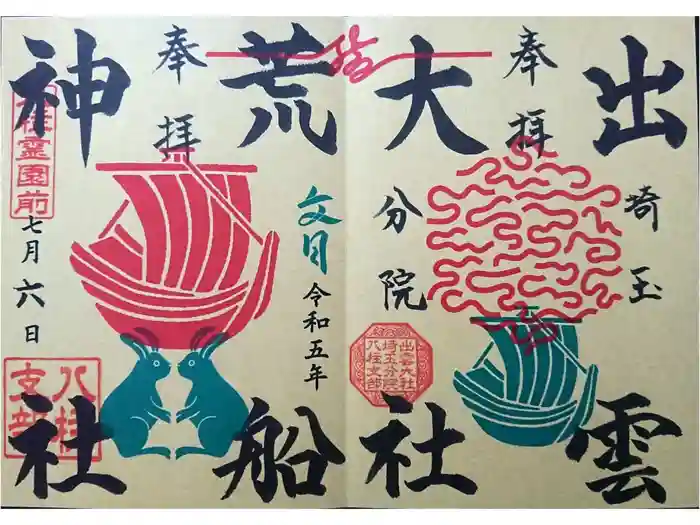 奉拝
出雲
大社
埼玉
分院
出雲大社
埼玉分院
八柱支部
奉拝
荒船
神社
文月
令和五年
七月六日
八柱霊園前
八柱
支部